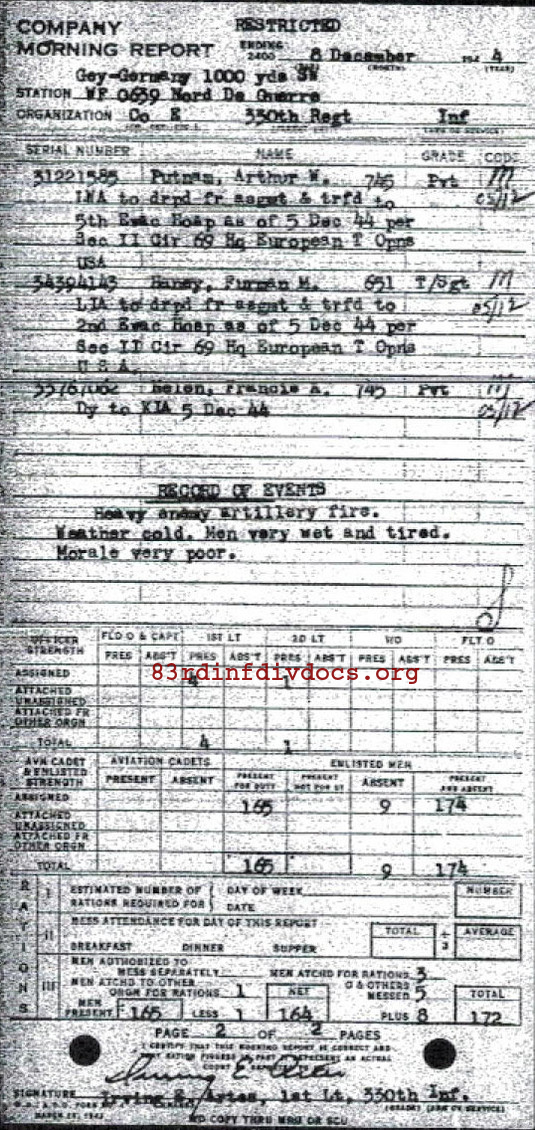 COMPANY RESTRICTED
MORNING REPORT ENDING 2400 8 December 194 4
Gey-Germany 1000 yds SW
STATION WF 0639 Nord De Guerre
ORGANIZATION Co E 330th Regt Inf
SERIAL NUMBER NAME GRADE CODE
31221585 Putnam, Arthur W. 745 Pvt M
LWA to drpd fr asgmt & trfd to 05/12
5th Evac Hosp as of 5 Dec 44 per
Sec II Cir 69 Hq European T Opns
USA
34394143 Furman M. 651 T/Sgt M
LIA to drpd fr asgmt & trfd to 05/12
2nd Evac Hosp as of 5 Dec 44 per
Sec II Cir 69 Hq European T Opns
U S A
Francis A. 745 Pvt M
Dy to KIA 5 Dec 44 05/12
RECORD OF EVENTS
Heavy enemy artillery fire.
Weather cold. Men very wet and tired.
Morale very poor.
OFFICER STRENGTH FLD O & CAPT 1ST LT 2D LT WO FLT O
PRES ABS'T PRES ABS'T PRES ABS'T PRES ABS'T PRES ABS'T
ASSIGNED 4 1
83rdinfdivdocs.org
ATTACHED UNASSIGNED
ATTACHED FR OTHER ORGN
TOTAL 4 1
AVN CADET & ENLISTED STRENGTH AVIATION CADETS ENLISTED MEN
PRESENT ABSENT PRESENT FOR DUTY PRESENT NOT FOR DY ABSENT PRESENT AND ABSENT
ASSIGNED 165 9 174
ATTACHED UNASSIGNED
ATTACHED FR OTHER ORGN
TOTAL 165 9 174
RATIONS
I ESTIMATED NUMBER OF RATIONS REQUIRED FOR DAY OF WEEK DATE NUMBER
II MESS ATTENDANCE FOR DAY OF THIS REPORT TOTAL ÷ 3 AVERAGE
BREAKFAST DINNER SUPPER
III MEN AUTHORIZED TO MESS SEPARATELY MEN ATCHD FOR RATIONS 3
MEN ATCHD TO OTHER ORGN FOR RATIONS 1 NET O & OTHERS MESSED 5 TOTAL
MEN PRESENT 165 LESS 1 164 PLUS 8 172
PAGE 2 OF 2 PAGES
I CERTIFY THAT THIS MORNING REPORT IS CORRECT AND
SIGNATURE Irving E. 1st Lt, 330th Inf.